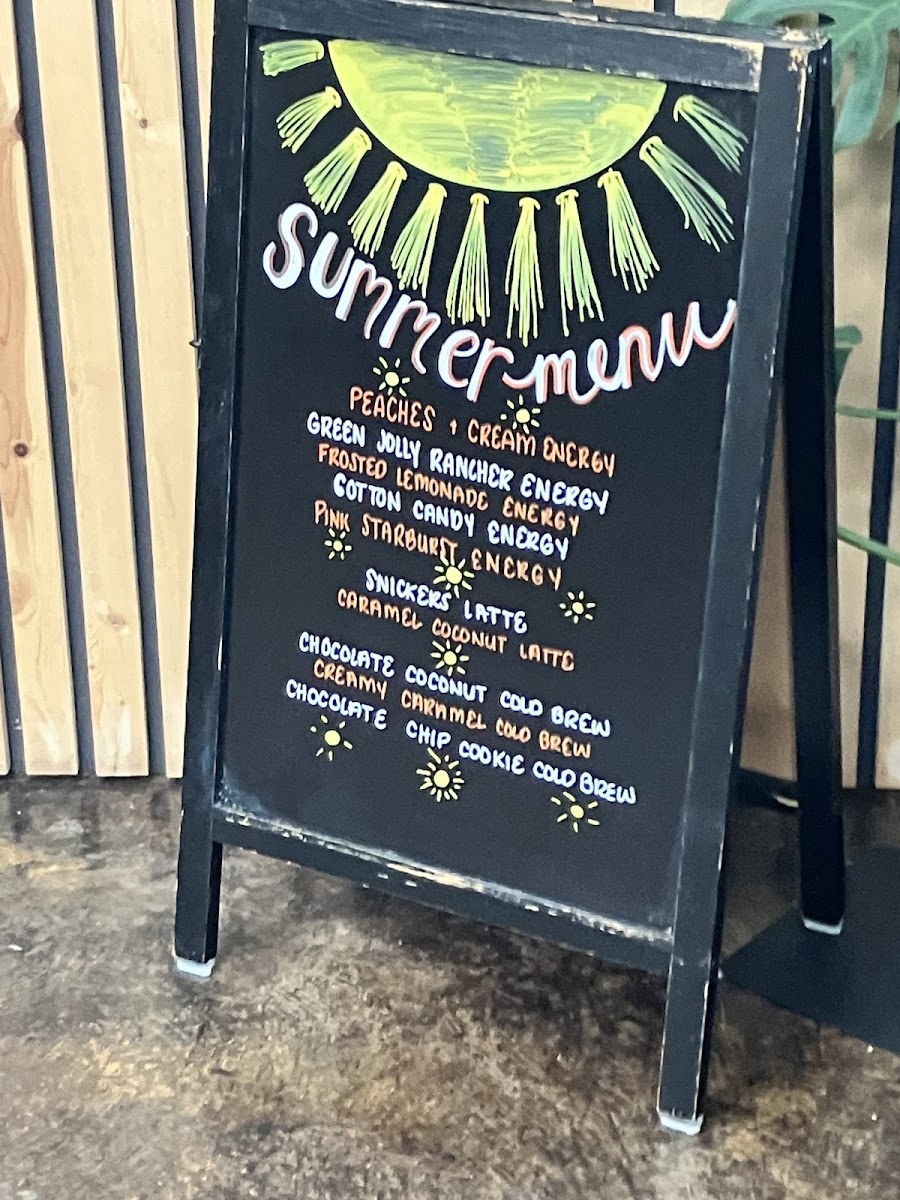 Summer menu
PEACHES + CREAM ENERGY
GREEN JOLLY RANCHER ENERGY
FROSTED LEMONADE ENERGY
COTTON CANDY ENERGY
PINK STARBURST ENERGY
SNICKERS LATTE
CARAMEL COCONUT LATTE
CHOCOLATE COCONUT COLD BREW
CREAMY CARAMEL COLD BREW
CHOCOLATE CHIP COOKIE COLD BREW